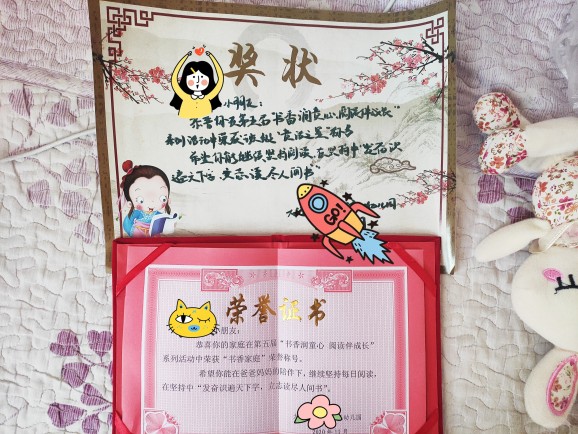 奖状
小朋友：
恭喜你在第五届"书香润童心 阅读伴成长"
系列活动中荣获
希望你能继续坚持阅读，在坚持中"发奋识
遍天下字，立志读尽人间书"。
Go!
荣誉证书
小朋友：
恭喜你的家庭在第五届"书香润童心 阅读伴成长"
系列活动中荣获"书香家庭"荣誉称号。
希望你能在爸爸妈妈的陪伴下，继续坚持每日阅读，
在坚持中"发奋识遍天下字，立志读尽人间书"。
幼儿园